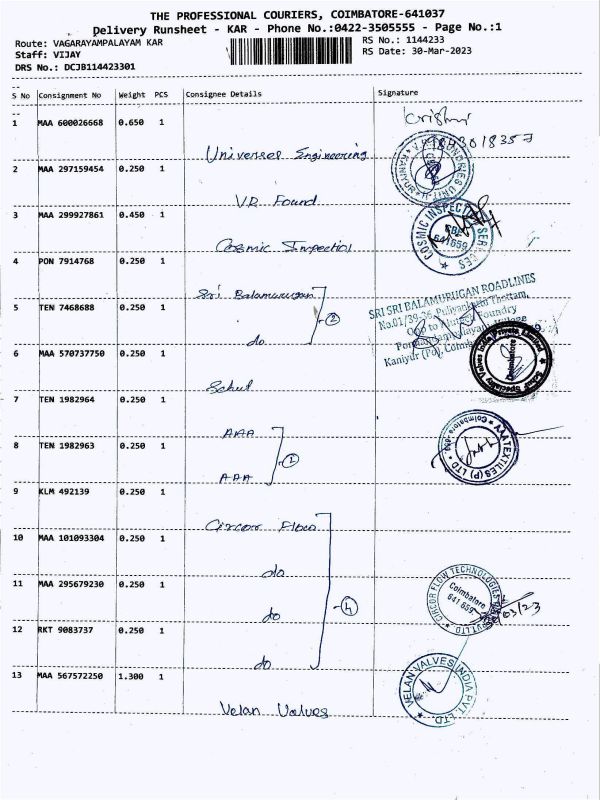 THE PROFESSIONAL COURIERS, COIMBATORE-641037
Delivery Runsheet - KAR - Phone No.:0422-3505555 - Page No.:1
Route: VAGARAYAMPALAYAM KAR
RS No.: 1144233
Staff: VIJAY
RS Date: 30-Mar-2023
DRS No.: DCJB114423301
S No Consignment No Weight PCS Consignee Details Signature
1 MAA 600026668 0.650 1
Universel Engineering
2 MAA 297159454 0.250 1
VR Found
3 MAA 299927861 0.450 1
Cosmic Inspection
COSMIC INSPECTION SERVICES
641659
4 PON 7914768 0.250 1
Sri Balamurugan
5 TEN 7468688 0.250 1
do
2
SRI SRI BALAMURUGAN ROADLINES
No.01/39-36, Puliyankattu Thottam,
Kaniyur (Po),
6 MAA 570737750 0.250 1
Schuf
Schuf Speciality Valves India Private Limited
Coimbatore
7 TEN 1982964 0.250 1
AAA
8 TEN 1982963 0.250 1
AAA
2
AAATEXTILES (P) LTD
9 KLM 492139 0.250 1
Circor Flow
10 MAA 101093304 0.250 1
do
11 MAA 295679230 0.250 1
do
12 RKT 9083737 0.250 1
do
4
CIRCOR FLOW TECHNOLOGIES
Coimbatore
641 659
13 MAA 567572250 1.300 1
Velan Valves
VELAN VALVES INDIA PVT. LTD.